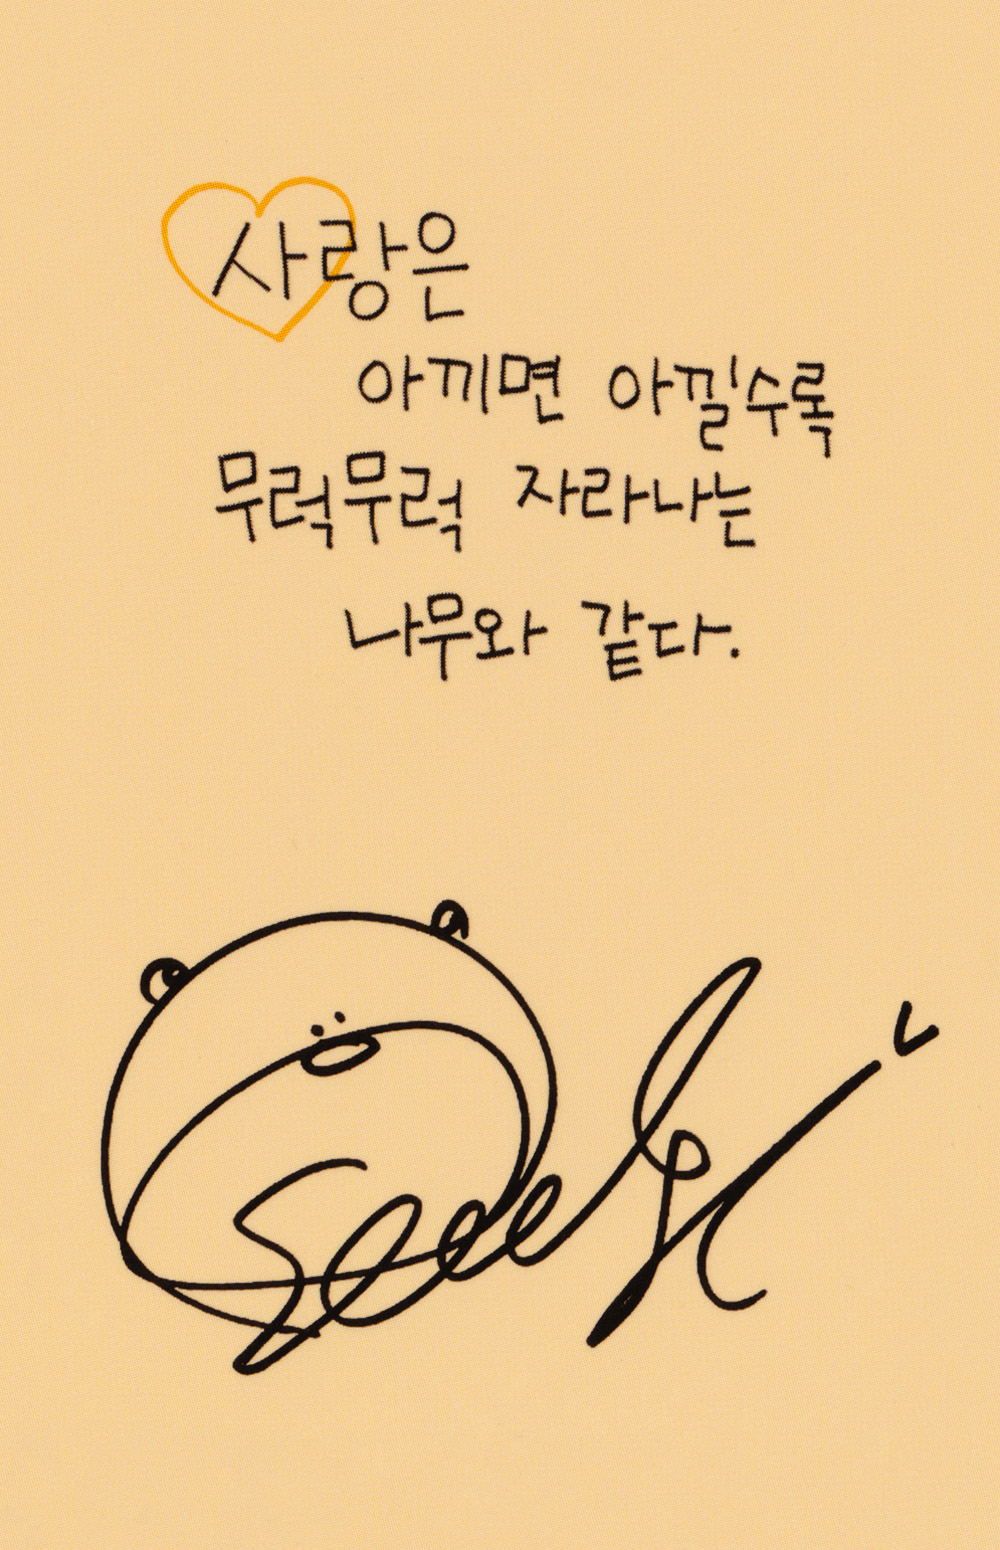 사랑은
아끼면 아낄수록
무럭무럭 자라나는
나무와 같다.